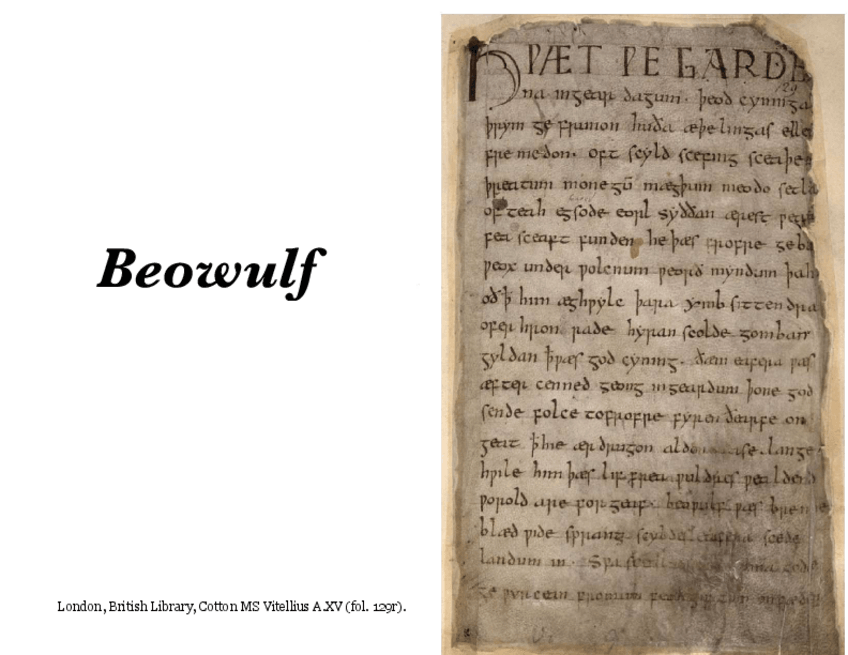 Beowulf
London, British Library, Cotton MS Vitellius A.XV (fol. 129r).
HǷÆT ǷE GARDE
129
na ingear dagum. þeod cyninga
þrym ge frunon huða æþelingas elle
fre medon. oft scyld scefing sceaþe
þreatum monegū mægþum meodo setla
of teah egsode eorl syððan ærest
fea sceaft funden he þæs frofre geba
ƿeox under ƿolcnum ƿeorð myndum þah
oðꝥ him æghƿylc þara ymb sittendra
ofer hron rade hyran scolde gomban
gyldan ꝥ ƿæs god cyning. ðæm eafera ƿæs
æfter cenned geong ingeardum þone god
sende folce tofrofre fyren ðearfe on
geat ꝥ hie ær drugon lange
hƿile him þæs lif frea ƿuldres ƿealdend
ƿorold are for geaf. beoƿulf ƿæs breme
blæd ƿide sprang scyldes eafera scede
landum in. Sƿa gode
ge ƿyrcean fromum